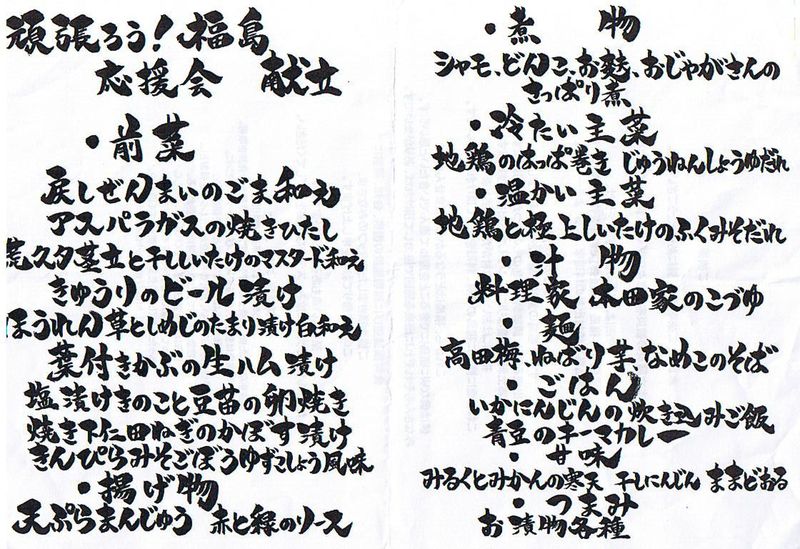 頑張ろう!福島
応援会 献立
・前菜
戻しぜんまいのごま和え
アスパラガスの焼きひたし
荒久田茎立と干ししいたけのマスタード和え
きゅうりのビール漬け
ほうれん草としめじのたまり漬け白和え
葉付きかぶの生ハム漬け
塩漬けきのこと豆苗の卵焼き
焼き下仁田ねぎのかぼす漬け
きんぴらみそごぼうゆずこしょう風味
・揚げ物
天ぷらまんじゅう 赤と緑のソース
・煮物
シャモ、どんこ、お麩、おじゃがさんの
さっぱり煮
・冷たい主菜
地鶏のはっぱ巻き じゅうねんしょうゆだれ
・温かい主菜
地鶏と極上しいたけのふくみそだれ
・汁物
料理家 本田家のこづゆ
・麺
高田梅、ねばり芋、なめこのそば
・ごはん
いかにんじんの炊き込みご飯
青豆のキーマカレー
・甘味
みるくとみかんの寒天 干しにんじん ままどおる
・つまみ
お漬物各種